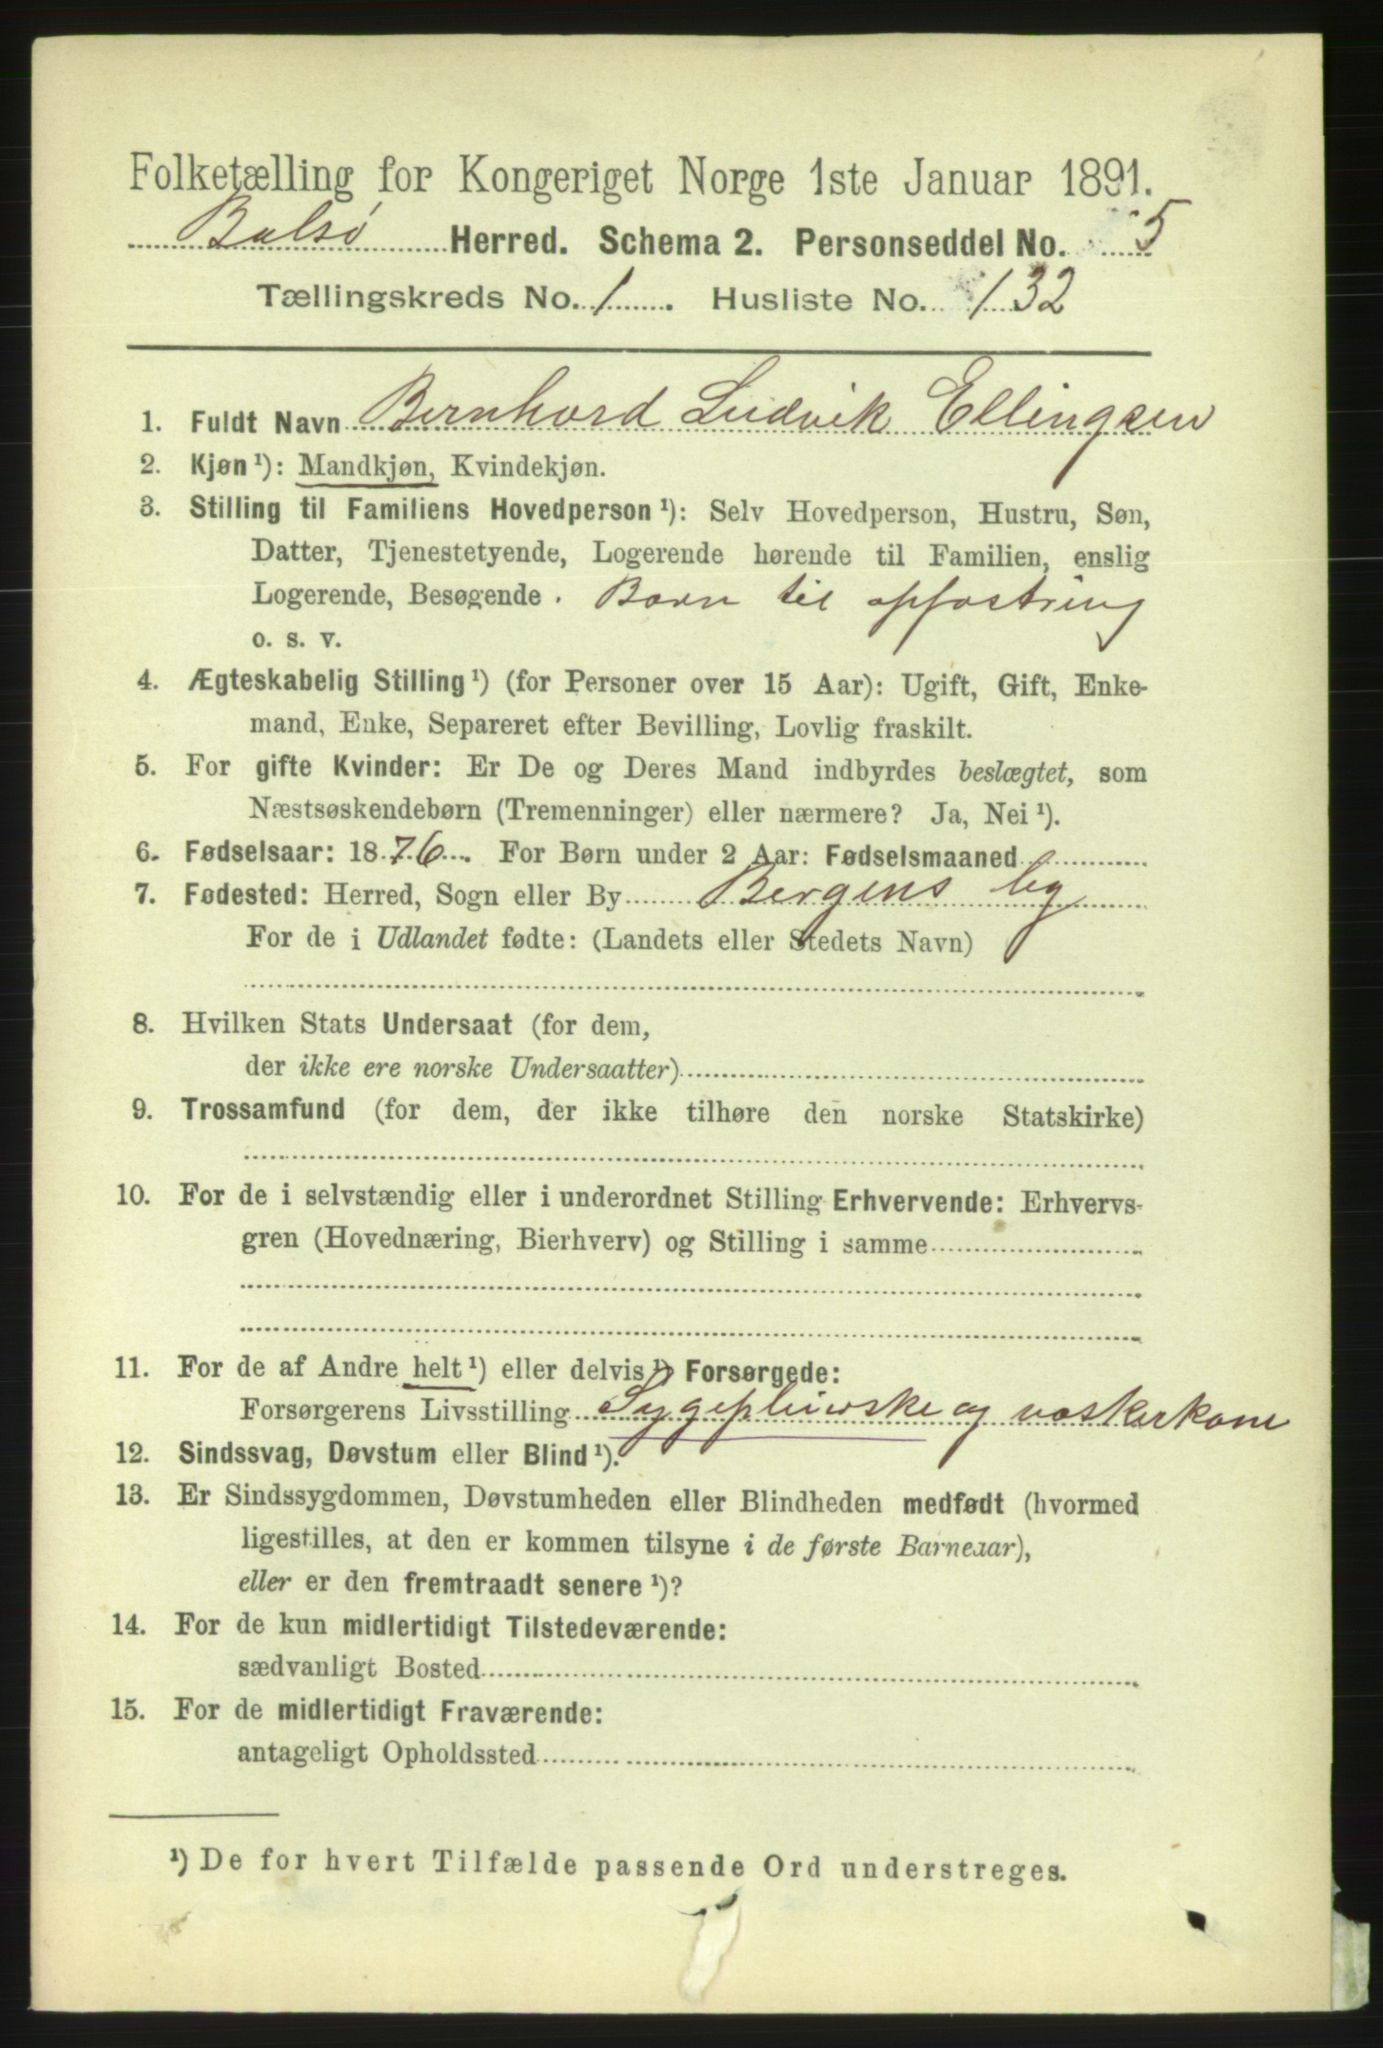 Folketælling for Kongeriget Norge 1ste Januar 1891.
Bolsø Herred. Schema 2. Personseddel No. 5
Tællingskreds No. 1. Husliste No. 132
1. Fuldt Navn Bernhard Ludvik Ellingsen
2. Kjøn¹): Mandkjøn, Kvindekjøn.
3. Stilling til Familiens Hovedperson¹): Selv Hovedperson, Hustru, Søn,
Datter, Tjenestetyende, Logerende hørende til Familien, enslig
Logerende, Besøgende. Barn til opfostring
o. s. v.
4. Ægteskabelig Stilling¹) (for Personer over 15 Aar): Ugift, Gift, Enke-
mand, Enke, Separeret efter Bevilling, Lovlig fraskilt.
5. For gifte Kvinder: Er De og Deres Mand indbyrdes beslægtet, som
Næstsøskendebørn (Tremenninger) eller nærmere? Ja, Nei¹).
6. Fødselsaar: 1876. For Børn under 2 Aar: Fødselsmaaned
7. Fødested: Herred, Sogn eller By Bergens by
For de i Udlandet fødte: (Landets eller Stedets Navn)
8. Hvilken Stats Undersaat (for dem,
der ikke ere norske Undersaatter)
9. Trossamfund (for dem, der ikke tilhøre den norske Statskirke)
10. For de i selvstændig eller i underordnet Stilling Erhvervende: Erhvervs-
gren (Hovednæring, Bierhverv) og Stilling i samme
11. For de af Andre helt¹) eller delvis¹) Forsørgede:
Forsørgerens Livsstilling Sygepleierske og vaskerkone
12. Sindssvag, Døvstum eller Blind¹).
13. Er Sindssygdommen, Døvstumheden eller Blindheden medfødt (hvormed
ligestilles, at den er kommen tilsyne i de første Barneaar),
eller er den fremtraadt senere¹)?
14. For de kun midlertidigt Tilstedeværende:
sædvanligt Bosted
15. For de midlertidigt Fraværende:
antageligt Opholdssted
¹) De for hvert Tilfælde passende Ord understreges.